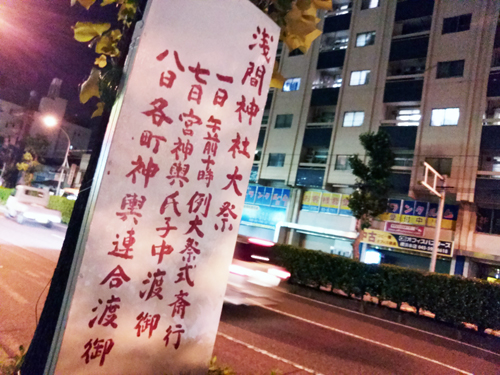 浅間神社大祭
一日 午前十時 例大祭式斎行
七日 宮神輿氏子中渡御
八日 各町神輿連合渡御